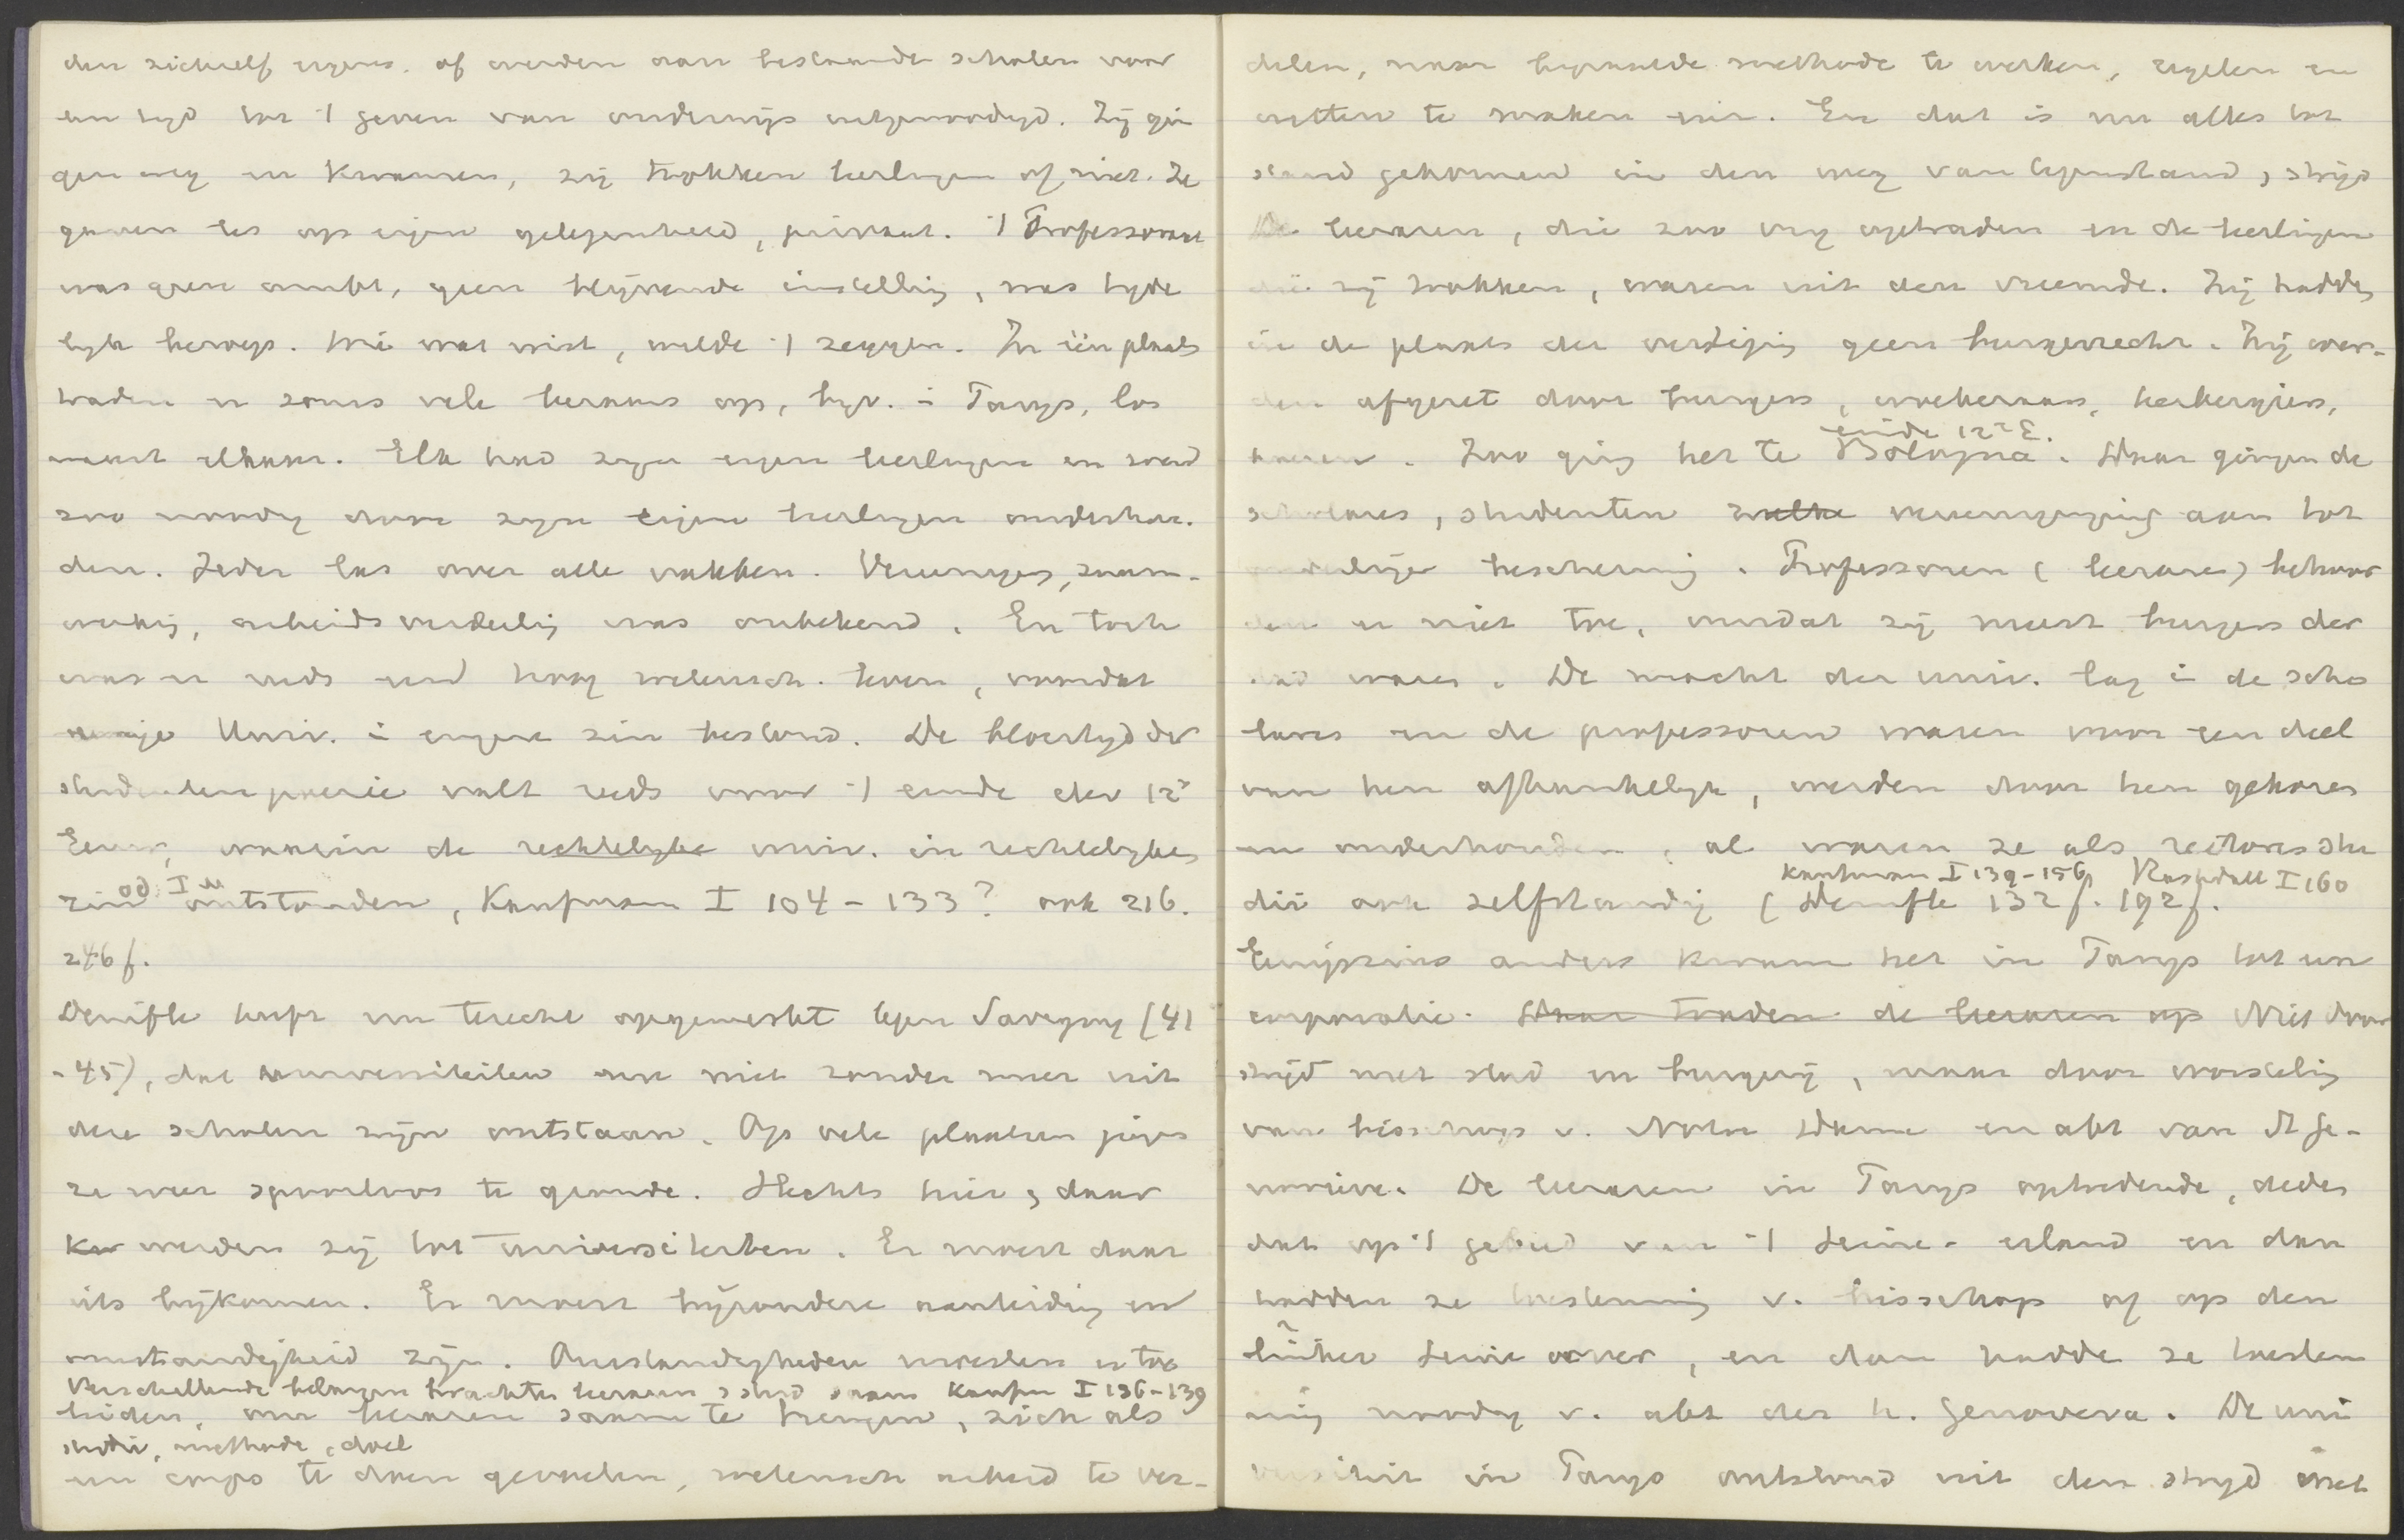 den zichzelf ergens, of werden aan bestaande scholen voor
een tijd tot 't geven van onderwijs uitgenoodigd. Zij gin
gen weg en kwamen, zij trokken leerlingen of niet. Ze
gaven les op eigen gelegenheid, privaat. 't Professoraat
was geen ambt, geen blijvende instelling, was tijde
lijk beroep. Wie wat wist, wilde 't zeggen. In één plaats
traden er soms vele leeraars op, bijv. i Parijs, los
naast elkaar. Elk had zijn eigen leerlingen en werd
zoo noodig door zijn eigen leerlingen onderhou-
den. Ieder las over alle vakken. Vereeniging, saam-
werking, arbeidsverdeeling was onbekend. En toch
was er reeds een hoog wetensch. leven, voordat
eenige Univ. i engere zin bestond. De bloeitijd der
studentenpoezie valt reeds voor 't einde der 12e
Eeuw, waarin de rechtelijke univ. in rechtelijken
zin ontstonden, Kaufmann I 104 - 133? ook 216.
246 f.
Denifle heeft nu terecht opgemerkt tegen Savigny (41
-45), dat universiteiten nu niet zonder meer uit
deze scholen zijn ontstaan. Op vele plaatsen gingen
ze weer spoorloos te gronde. Slechts hier, daar
werden zij tot universiteiten. Er moest daar
iets bijkomen. Er moest bijzondere aanleiding en
omstandigheid zijn. Omstandigheden moesten er toe
Verschillende belangen brachten leeraren, stud saam Kaufm I 136-139
leiden, om leeraren saam te brengen, zich als
studie, methode, doel
een corps te doen gevoelen, wetensch arbeid te ver-
delen, naar bepaalde methode te werken, regelen en
wetten te maken enz. En dat is nu alles tot
stand gekomen in den weg van tegenstand, strijd
De leeraren, die zoo vrij optraden en de leerlingen
die zij trokken, waren uit den vreemde. Zij hadden
in de plaats der vestiging geen burgerrecht. Zij wer-
den afgezet door burgers, woekeraars, herbergiers,
einde 12e E.
Zoo ging het te Bologna. Daar gingen de
scholares, studenten zulke vereeniging aan tot
onderlinge bescherming. Professoren (leeraren) behoor
den er niet toe, omdat zij meest burgers der
stad waren. De macht der univ. lag i de scho
lares en de professoren waren voor een deel
van hen afhankelijk, werden door hen gekozen
en onderhouden, al waren ze als rectores stu
Kaufmann I 139-156, Rashdall I 160
dii ook zelfstandig (Denifle 132 f. 192 f.
Eenigszins anders kwam het in Parijs tot een
corporatie. Daar traden de leeraren op Niet door
strijd met stad en burgerij, maar door worsteling
van bisschop v. Notre Dame en abt van St Ge-
nevieve. De leeraren in Parijs optredende, deden
dat op 't gebied van 't Seine-eiland en dan
hadden ze toestemming v. bisschop of op den
linker Seine oever, en dan hadde ze toestem
ming noodig v. abt der h. Genoveva. De uni
versiteit in Parijs ontstond uit den strijd met